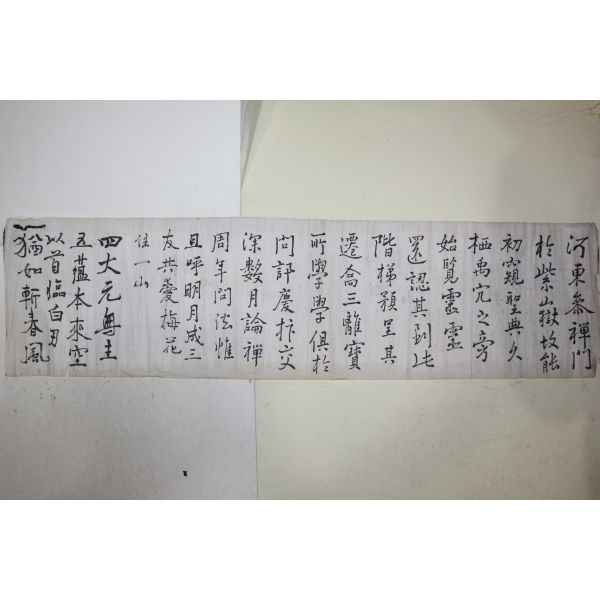 河東叅禅門
於紫山嶽故能
初窺聖典久
栖禹穴之旁
始覧霊
還認其到此
階梯預呈其
遷喬三離寶
所學俱於
問訊慶抃交
深數月論禅
周年問法惟
且呼明月成三
友共愛梅花
住一山
四大元無主
五蘊本來空
以首臨白刃
猶如斬春風